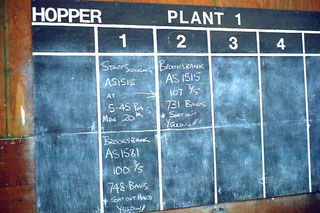 HOPPER PLANT 1
1 2 3 4
START SCOURING
AS1515
AT
5-45 PM
MON 20th
BROOKSBANK
AS1581
100 3/5
748 BALES
* SORT OUT HARD
YELLOW!!
BROOKSBANK
AS1515
107 3/5
731 BALES
* SORT OUT
YELLOW!!